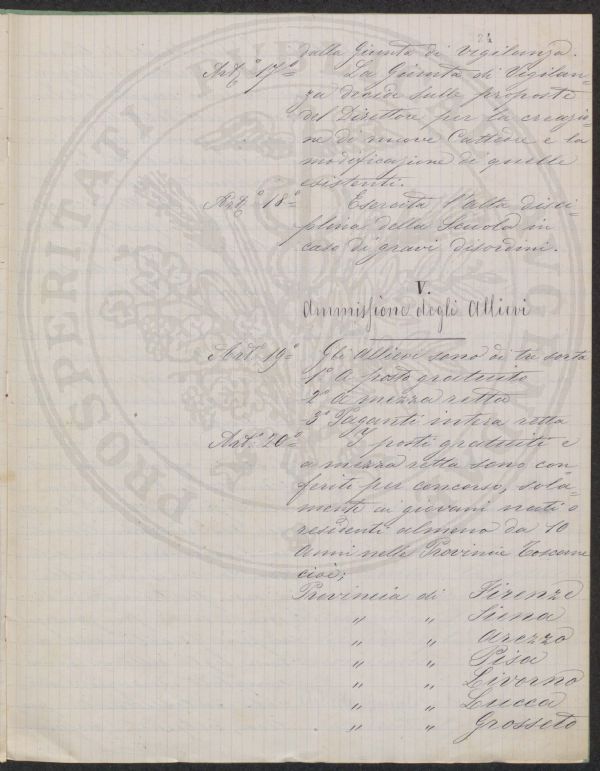 24
dalla Giunta di Vigilanza.
Art.º 17º La Giunta di Vigilan-
za decide sulle proposte
del Direttore per la creazio-
ne di nuove Cattedre e la
modificazione di quelle
esistenti.
Art.º 18º Esercita l'alta disci-
plina della Scuola in
caso di gravi disordini.
V.
Ammissione degli Allievi
Art. 19º Gli Allievi sono di tre sorta
1º A posto gratuito
2º A mezza retta
3º Paganti intera retta
Art.º 20º I posti gratuiti e
a mezza retta sono con
feriti per concorso, sola-
mente ai giovani nati o
residenti almeno da 10
anni nelle Provincie Toscane
cioè;
Provincia di Firenze
" " Siena
" " Arezzo
" " Pisa
" " Livorno
" " Lucca
" " Grosseto
PROSPERITATI PUBLICAE